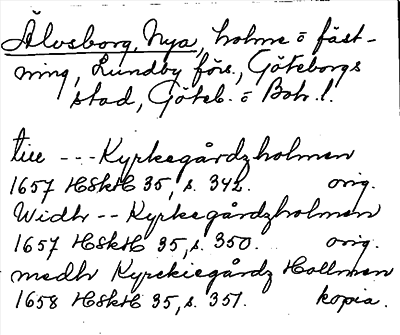 Älvsborg, Nya, holme o fäst-
ning, Lundby förs., Göteborgs
stad, Göteb. o Boh. l.
till --- Kyrkegårdzholmen
1657 HSkH 35, s. 342. orig.
Widh -- Kyrkegårdzholmen
1657 HSkH 35, s. 350. orig.
medh Kyrckiegårdz Hollmen
1658 HSkH 35, s. 351. kopia.